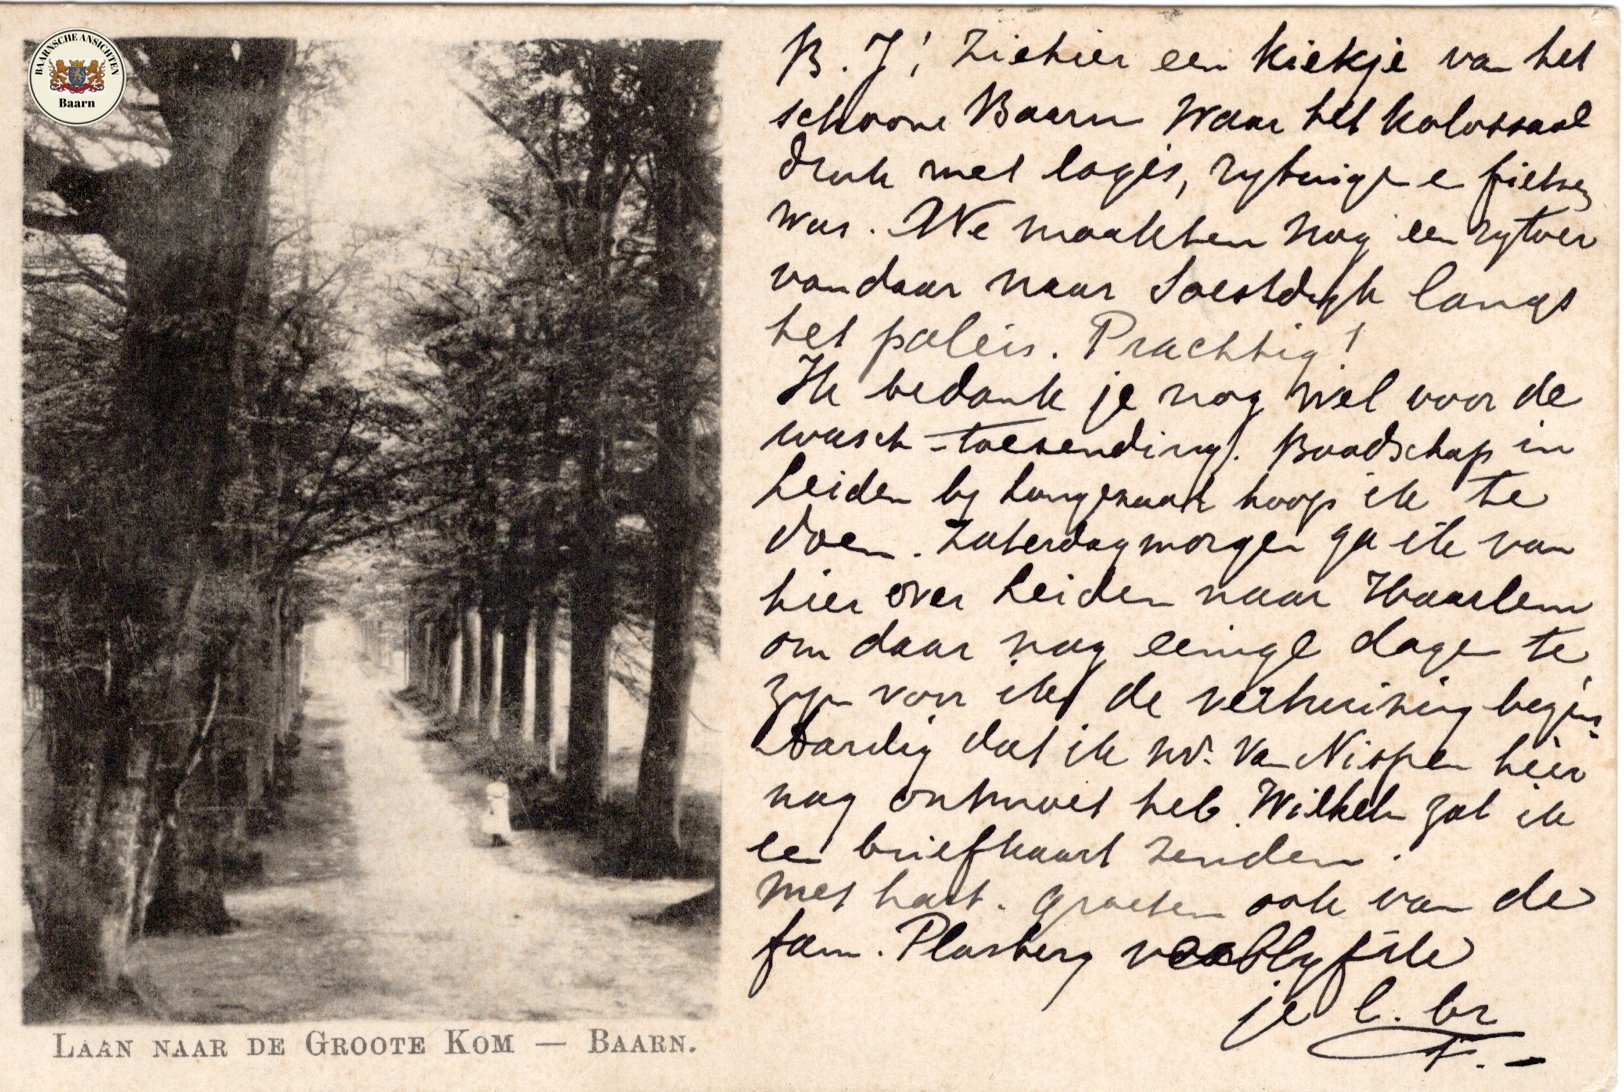 BAARNSCHE ANSICHTEN
Baarn
B. J! Ziehier een kiekje van het
schoone Baarn waar het kolossaal
druk met logés, rytuigen en fietsen
was. We maakten nog een rytoer
vandaar naar Soestdyk langs
het paleis. Prachtig!
Ik bedank je nog wel voor de
wasch-toezending. Boodschap in
Leiden by Langezaal hoop ik te
doen. Zaterdagmorgen ga ik van
hier over Leiden naar Haarlem
om daar nog eenige dagen te
zyn voor ik de verhuizing begin.
Aardig dat ik Mr. van Nispen hier
nog ontmoet heb. Wilhelm zal ik
een briefkaart zenden.
Met hart. groeten ook van de
fam. Plasberg verblyf ik
je l. br
F.-
LAAN NAAR DE GROOTE KOM — BAARN.